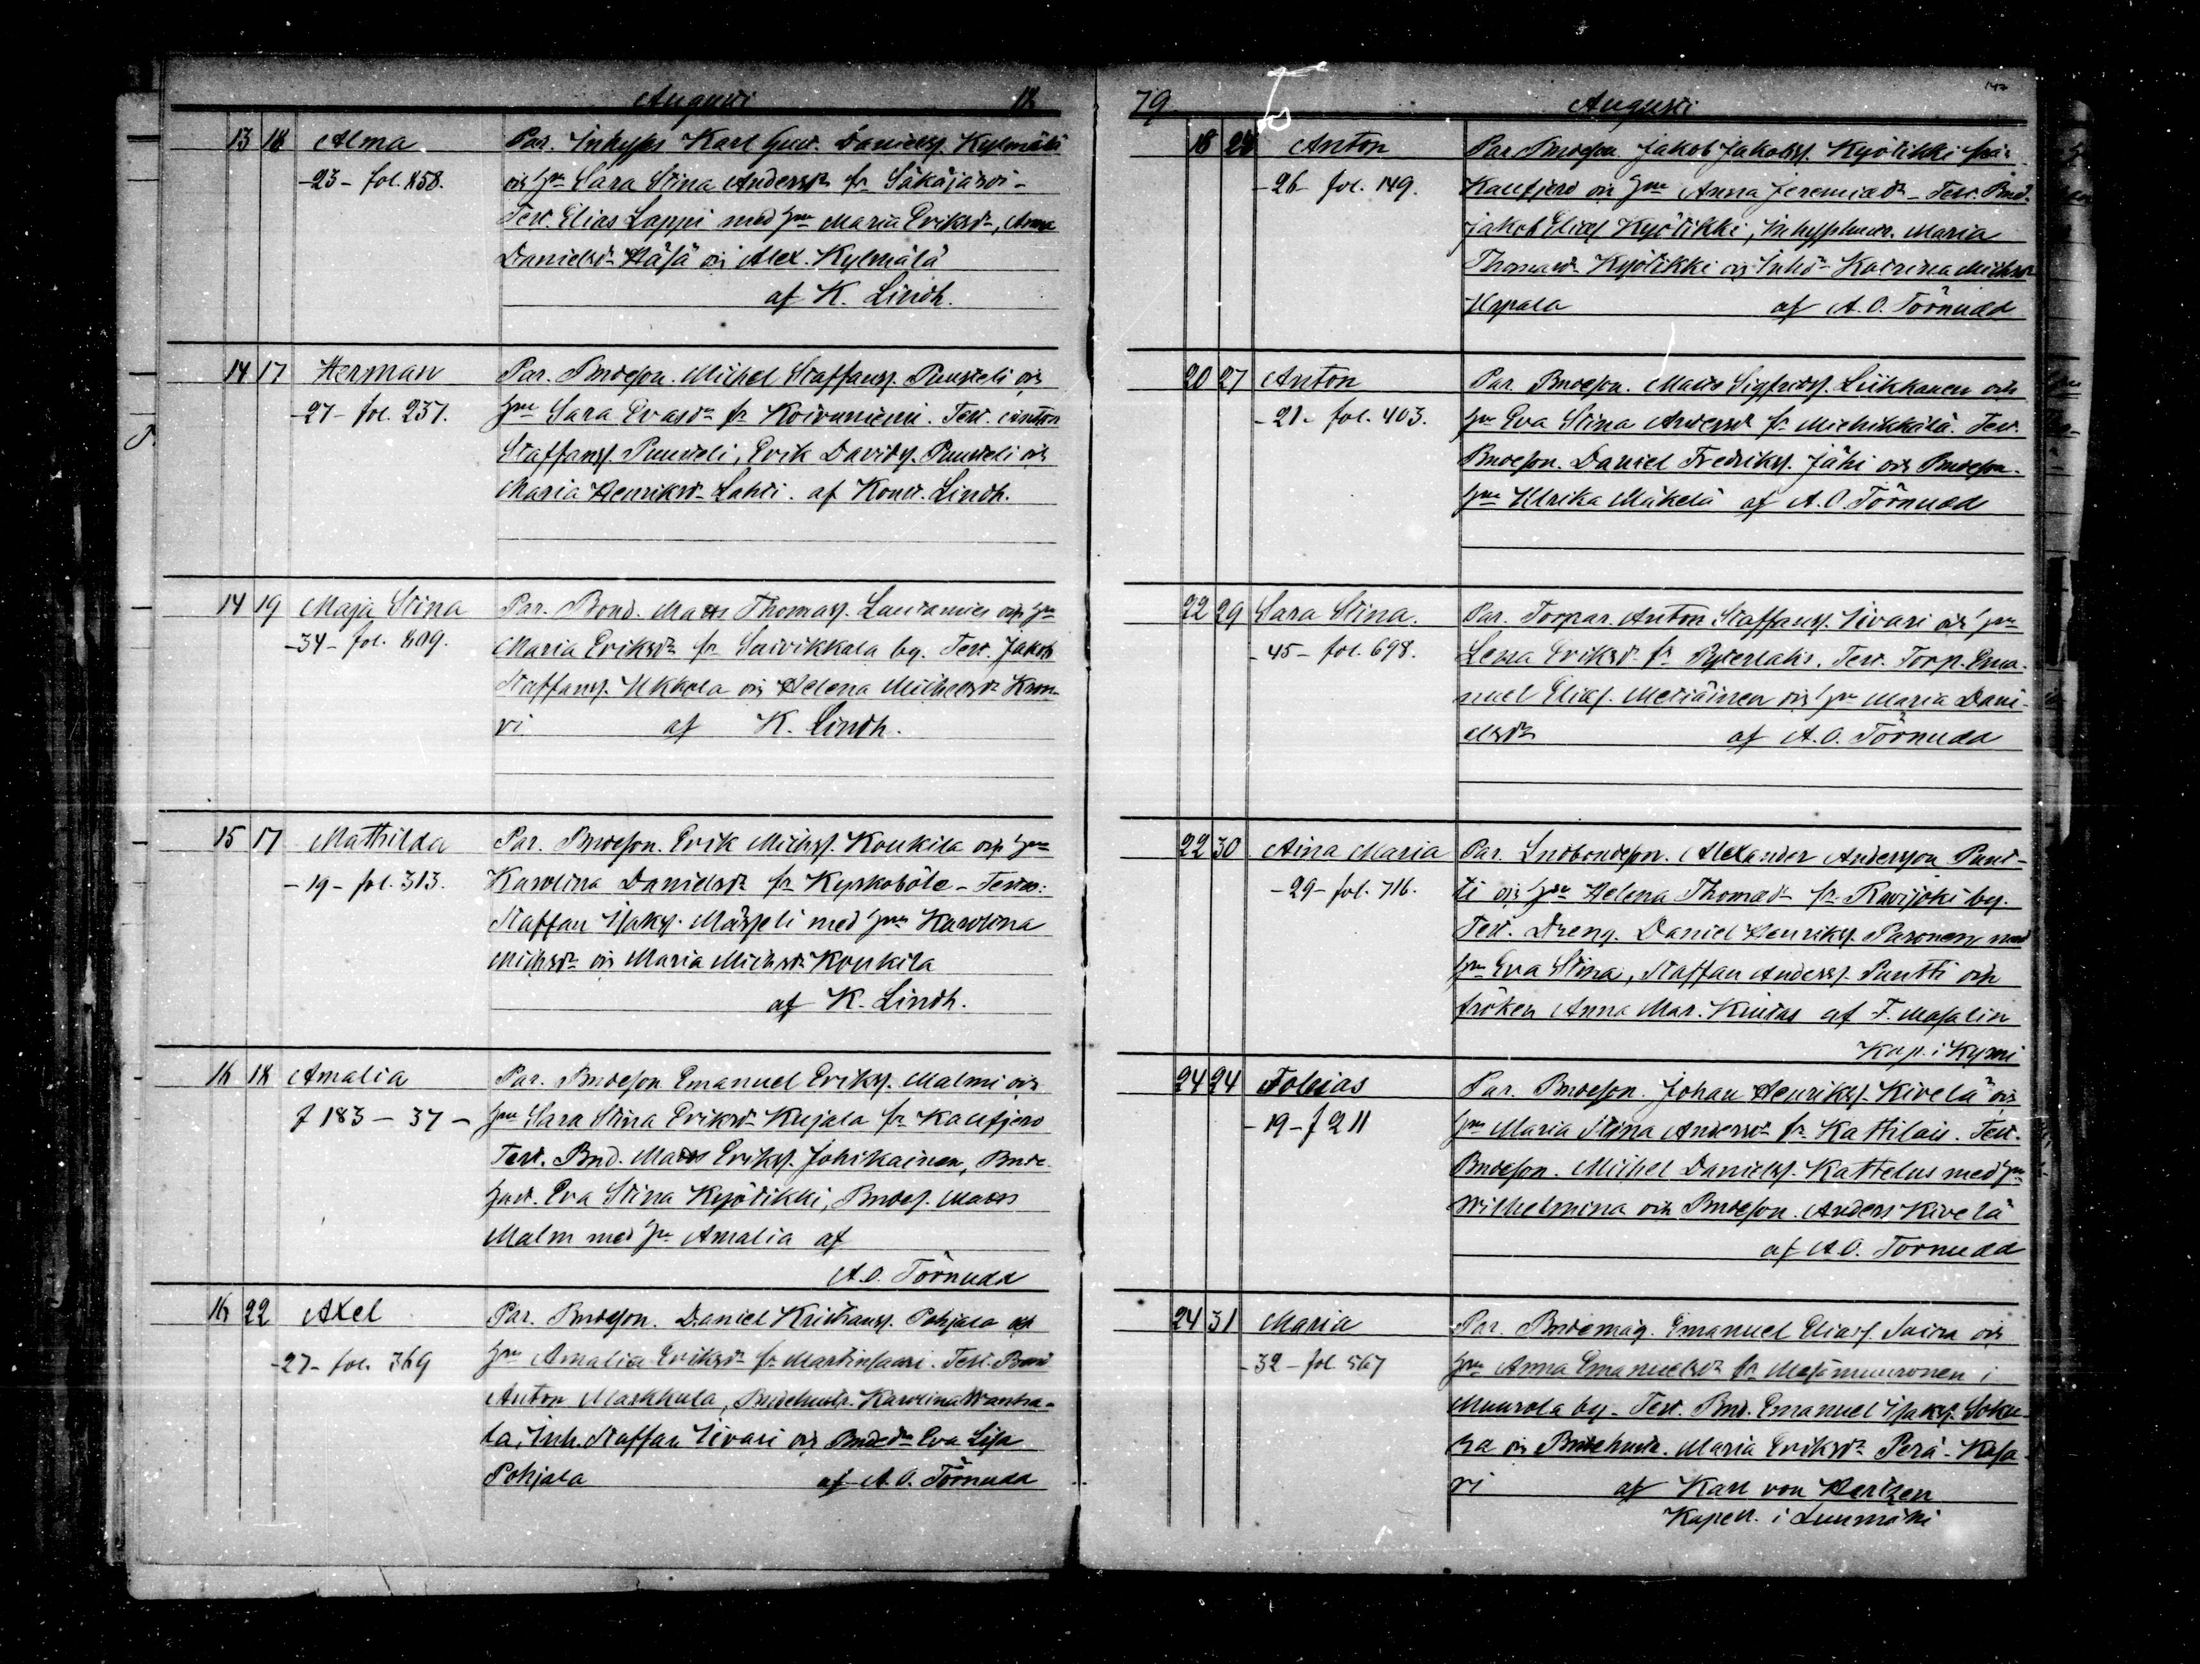 Augusti 18
13 18 Alma Par. Inhyses Karl Gust. Danielss. Kylmälä
-23- fol. 858. och Hu Sara Stina Andersdr fr Säkäjärvi -
Test. Elias Lappi med Hu Maria Eriksdr, Anna
Danielsdr Häsä och Alex. Kylmälä
af K. Lindh.
14 17 Herman Par. Bndeson. Michel Staffanss. Puusteli och
-27- fol. 237. Hu Sara Evasdr fr Koivuniemi. Test. Anton
Staffanss. Puusteli, Erik Davidss. Puusteli och
Maria Henriksdr Lahti. af Konst. Lindh.
14 19 Maja Stina Par. Bond. Matts Thomass. Lautamies och Hu
-34- fol. 809. Maria Eriksdr fr Suivikkala by. Test. Jakob
Staffanss. Ukkola och Helena Michelsdr Kron-
ri af K. Lindh.
15 17 Mathilda Par. Bndeson. Erik Michss. Koukila och Hu
-19- fol. 313. Karolina Danielsdr fr Kyrkoböle - Testes:
Staffan Isakss. Mässeli med Hu Karolina
Michsdr och Maria Michsdr Koukila
af K. Lindh.
16 18 Amalia Par. Bndeson Emanuel Erikss. Malmi och
f 183 - 37 - Hu Sara Stina Eriksdr Kujala fr Kaufjerd
Test. Bnd. Matts Erikss. Johikainen, Bnde-
hust. Eva Stina Kyötikki, Bndes. Matts
Malm med Hu Amalia af
A.O. Törnudd
16 22 Axel Par. Bndeson. Daniel Kristianss. Pohjala och
-27- fol. 369 Hu Amalia Eriksdr fr Martinsaari. Test. Bond
Anton Markkula, Bndehustr. Karolina Wantta-
la, Inh. Staffan Iivari och Bndedr Eva Lisa
Pohjala af A.O. Törnudd
79 Augusti
18 24 Anton Par. Bndeson. Jakob Jakobss. Kyötikki från
-26- fol. 149. Kaufjerd och Hu Anna Jeremiasdr - Test. Bnd.
Jakob Eliass Kyötikki, Inhyshustr. Maria
Thomasdr Kyötikki och Inhs Katrina Michsdr
Uspala af A.O. Törnudd
20 27 Anton Par. Bndeson. Matts Sigfridss. Liikkanen och
-21- fol. 403. Hu Eva Stina Andersdr fr Miehikkälä. Test.
Bndeson. Daniel Fredrikss. Jähi och Bndeson-
Hu Ulrika Mäkelä af A.O. Törnudd
22 29 Sara Stina. Par. Torpar. Anton Staffanss. Iivari och Hu
-45- fol. 698. Lena Eriksdr fr Pyterlaks. Test. Torp. Ema-
nuel Eliass. Metiäinen och Hu Maria Dani-
elsdr af A.O. Törnudd
22 30 Aina Maria Par. Lndbondeson. Alexander Andersson Punt-
-29- fol. 716. ti och Hu Helena Thomasdr fr Ravijoki by.
Test. Dreng. Daniel Henrikss. Paronen med
Hu Eva Stina, Staffan Anderss. Puntti och
fröken Anna Mar. af F. Masalin
Kap. i Kymi
24 24 Tobias Par. Bndeson. Johan Henrikss. Kivelä och
-19- f 211 Hu Maria Stina Andersdr fr Kattilais. Test.
Bndeson. Michel Danielss. Kattelus med Hu
Wilhelmina och Bndeson. Anders Kivelä
af A.O. Törnudd
24 31 Maria Par. Bndemåg. Emanuel Eliass. Suira och
-32- fol 567 Hu Anna Emanuelsdr fr i
Muurola by - Test. Bnd. Emanuel Isakss. Soku-
ra och Bndehustr. Maria Eriksdr Perä-Kasa-
ri af Karl von Hertzen
Kapell. i Luumäki